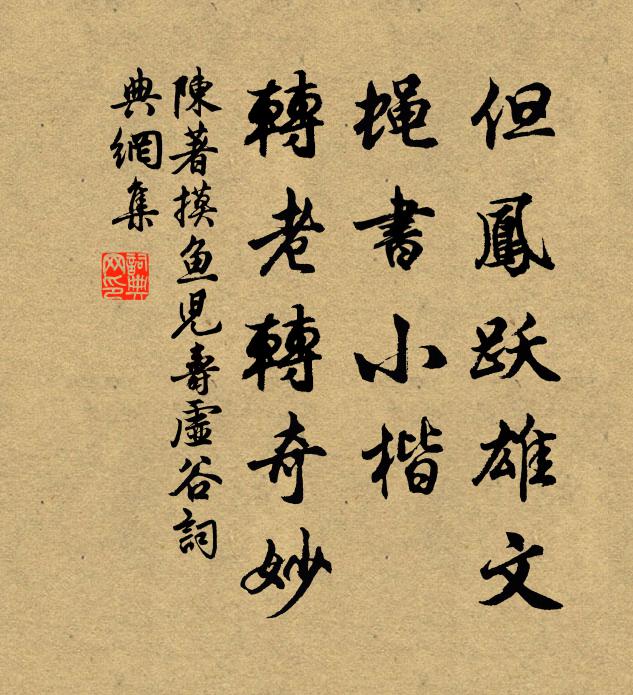 但鳳跃雄文
蝇書小楷
轉老轉奇妙
陳著摸鱼児壽虛谷詞
典網集
詞典网印